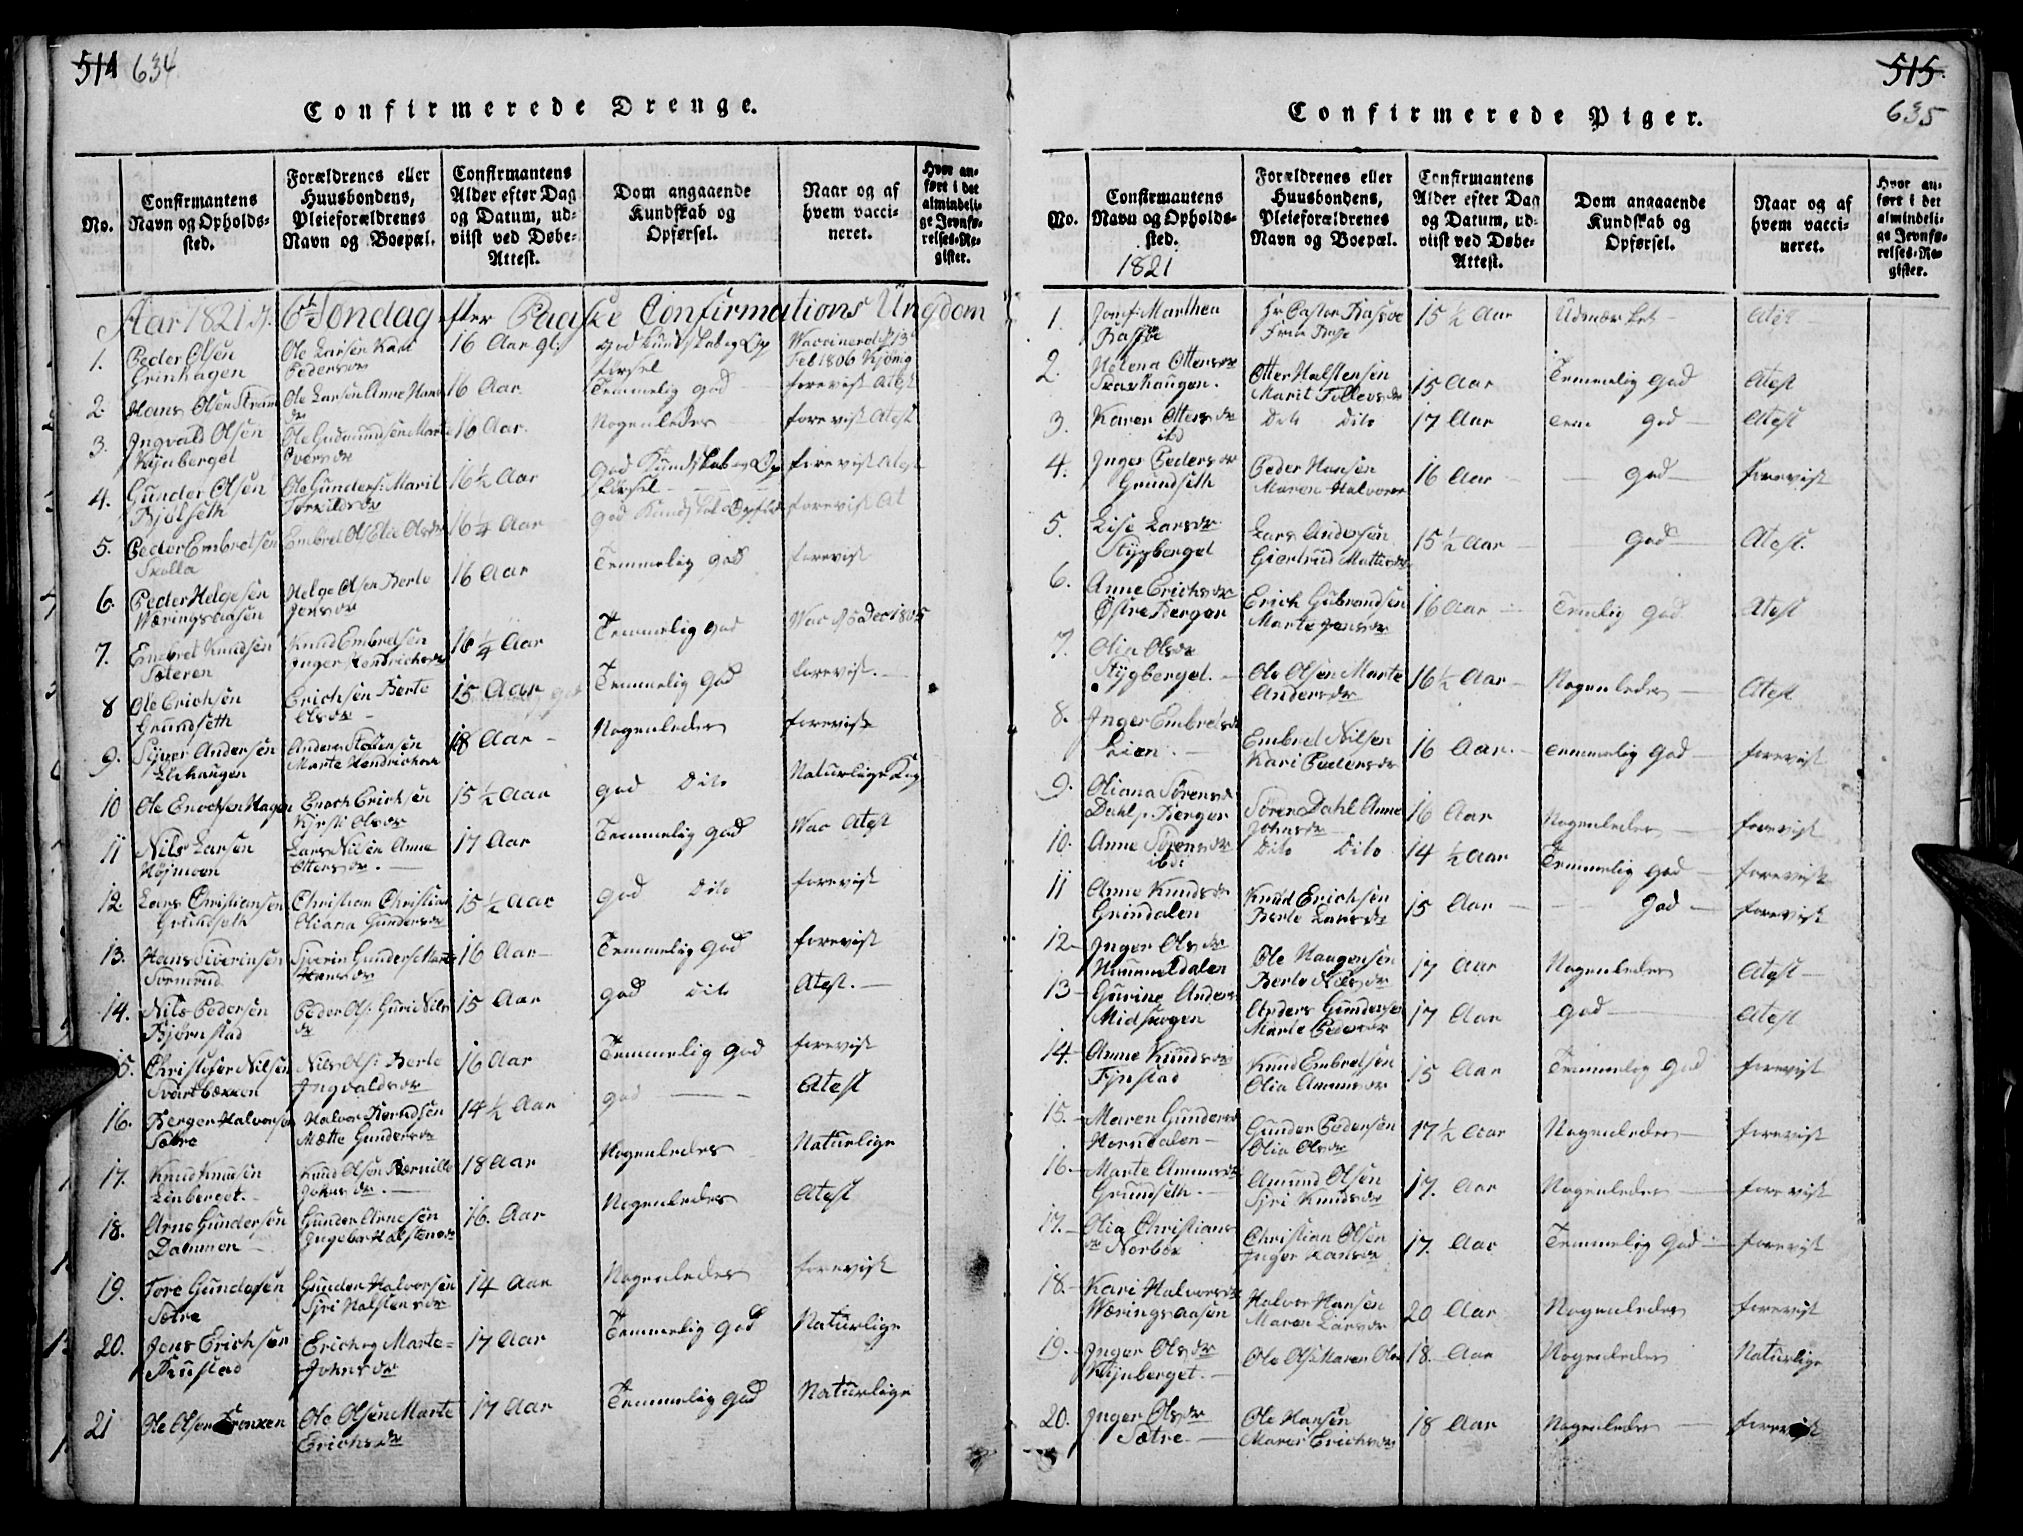 514 634
Confirmerede Drenge.
No.
Confirmantens
Navn og Opholds-
sted.
Forældrenes eller
Huusbondens,
Pleieforældrenes
Navn og Boepæl.
Confirmantens
Alder efter Dag
og Datum, ud-
viist ved Døbe-
Attest.
Dom angaaende
Kundskab og
Opførsel.
Naar og af
hvem vacci-
neret.
Hvor an-
ført i det
almindeli-
ge Jevnfø-
relses-Re-
gister.
Aar 1821 d. 6t Søndag efter Paaske Confirmations Ungdom
1. Peder Olsen Ole Larsen Kari 16 Aar gl. god Kundskab og Op Waccineret d 13
Grinhagen Pedersdr førsel Feb 1806
2. Hans Olsen Ole Larsen Anne Hans 16 Aar Temmelig god forevist Atest
dr
3. Ingvald Olsen Ole Gudmundsen Marte 16 Aar. Nogenledes forevist Atest
Kynberget Iversdr
4. Gunder Olsen Ole Gunders: Marit 16½ Aar God Kundskab og Op forevist Atest
Bjølseth Torkildsdr førsel
5. Peder Embretsen Embret Ols Elie Olsdr 16¼ Aar god Kundskab Opførs forevist At
Skolla
6. Peder Helgesen Helge Olsen Berte 16 Aar Temmelig god forevist
Wæringsaasen Jensdr
7. Embret Knudsen Knud Embretsen 16¼ Aar Temmelig god Wac d 6 Dec 1805
Sæteren Inger Hendrichsdr
8 Ole Erichsen Erichsen Berte 15 Aar Temmelig god forevist.
Grundseth Olsdr
9. Syver Andersen Anders Stolensen 18 Aar Nogenledes forevist
Lilehaugen Marte Hendrichsdr
10 Ole Enochsen Hagen Enoch Erichsen 15½ Aar god Dito Naturlige Kop
Kjersti Olsdr
11 Nils Larsen Lars Nilsen Anne 17 Aar Temmelig god Wac Atest
Højmoen Ottersdr.
12 Lars Christiansen Christian Christian 15½ Aar god Dito forevist
Grundseth Oliana Gundersdr
13. Hans Siverinsen Syverin Gunders Marte 16 Aar Temmelig god forevist
Sormrud Hansdr
14. Nils Pedersen Peder Ols: Guri Nils 15 Aar god Dito Atest.
Bjørnstad dr
15. Christofer Nilsen Nils Ols: Berte 16 Aar Temmelig god forevist
Svartbækken Ingvaldsdr
16. Berger Halvorsen Halvor 14½ Aar god Atest
Sætre Mætte Gundersdr
17. Knud Knudsen Knud Olsen Pernille 18 Aar Nogenledes Naturlige
Linberget. Johnsdr.
18. Arne Gundersen Gunder Arnesen 16. Aar Nogenledes Atest
Dammen Ingebor Halstensdr
19. Tore Gundersen Gunder Halvorsen 14 Aar Nogenledes forevist
Sætre Siri Halstensdr
20. Jens Erichsen Erich og Marte 17 Aar Temmelig god Naturlige
Rustad Johnsdr
21 Ole Olsen Ole Olsen Marte 17 Aar Temmelig god Naturlige
Erichsdr
515
635
Confirmerede Piger.
No.
Confirmantens
Navn og Opholds-
sted.
1821
Forældrenes eller
Huusbondens,
Pleieforældrenes
Navn og Boepæl.
Confirmantens
Alder efter Dag
og Datum, ud-
viist ved Døbe-
Attest.
Dom angaaende
Kundskab og
Opførsel.
Naar og af
hvem vacci-
neret.
Hvor an-
ført i det
almindeli-
ge Jevnfø-
relses-Re-
gister.
1. Jomf. Marthea Hr Pastor 15½ Aar Udmærket Atest
2. Helena Ottersdr Otter Halstensen 15 Aar Temmelig god Atest
Skaxhaugen. Marit Tollevsdr
3. Karen Ottersdr Dito Dito 17 Aar Tem god Atest
ibd
4. Inger Pedersdr Peder Hansen 16 Aar god forevist
Grundseth Maren Halvorsdr
5. Lise Larsdr Lars Andersen 15½ Aar god Atest.
Stygberget Giertrud Mattisdr
6. Anne Erichsdr Erich Gubrandsen 16 Aar Temlig god Atest
Østre Berger Marte Jensdr
7. Olia Olsdr Ole Olsen Marte 16½ Aar Nogenledes Atest
Stygberget. Andersdr
8. Inger Embretsdr Embret Nilsen 16 Aar. emmelig god forevist
Lien. Kari Pedersdr
9. Oliana Sørensdr Søren Dahl Anne 16 Aar Nogenledes forevist
Dahl p. Berger Johnsdr
10. Anne Sørensdr Dito Dito 14½ Aar Temmelig god forevist
ibdi
11 Anne Knudsdr Knud Erichsen 15 Aar god forevist
Grindalen Berte Larsdr
12 Inger Olsdr Ole Haagensen 17 Aar Nogenledes Atest
Hummeldalen Berte Nilsdr
13 Gurine Anders Anders Gundersen 17 Aar god Atest
Midskogen Marte Pedersdr
14. Anne Knudsdr Knud Embretsen 15 Aar Temmelig god forevist
Fynstad Olia Amunsdr
15. Maren Gundersdr Gunder Pedersen 17½ Aar Nogenledes forevist
Horndalen Olia Olsdr
16 Marte Amunsdr Amund Olsen 17. Aar Nogenledes forevist
Grundseth. Sjri Knudsdr
17. Olia Christians Christian Olsen 17. Aar Temmelig god forevist
dr Norbøe Inger Larsdr
18. Kari Halvorsdr Halvor Hansen 20 Aar Nogenledes forevist
Wæringsaasen Maren Larsdr
19. Inger Olsdr Ole Ols: Maren Ols 18. Aar Nogenledes Naturlige
Kynberget.
20. Inger Olsdr Ole Hansen 18 Aar Nogenledes forevist
Sætre Maren Erichsdr